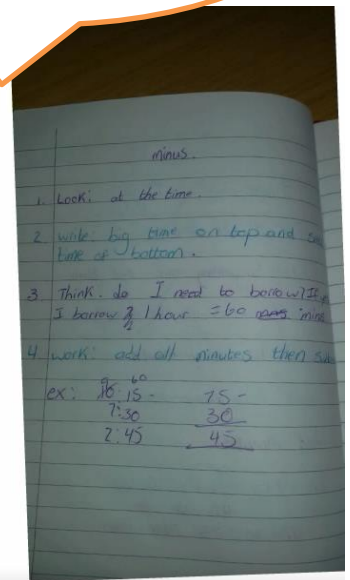 minus.
1. Look: at the time.
2. write: big time on top and
time at bottom.
3. Think. do I need to borrow? If
I borrow 1 hour = 60 mins
4. work: add all minutes then
ex: 10:15 - 75 -
7:30 30
2:45 45